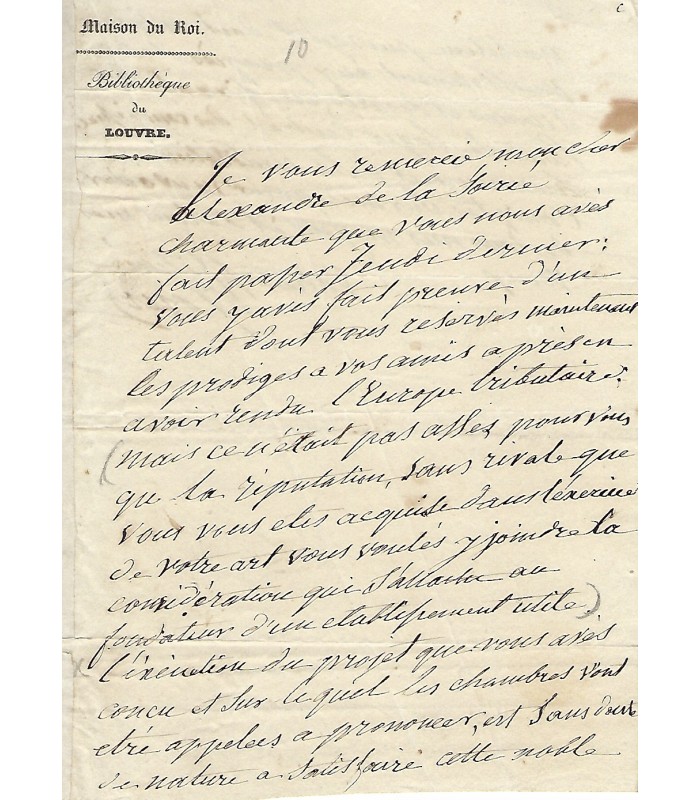 c
Maison du Roi.
10
Bibliothèque
du
LOUVRE.
Je vous remercie mon cher
alexandre de la Soirée
charmante que vous nous avès
fait passer Jeudi dernier.
vous y avès fait preuve d'un
talent dont vous reservès maintenant
les prodiges a vos amis après en
avoir rendu l'Europe tributaire.
(mais ce n'était pas assès pour vous
que la réputation, Sans rivale que
vous vous etes acquise dans l'éxercice
de votre art vous voulés y joindre la
considération qui S'attache au
fondateur d'un etablissement utile)
L'éxécution du projet que vous avès
concu et sur lequel les chambres vont
etre appelees a prononcer, est Sans doute
de nature a Satisfaire cette noble